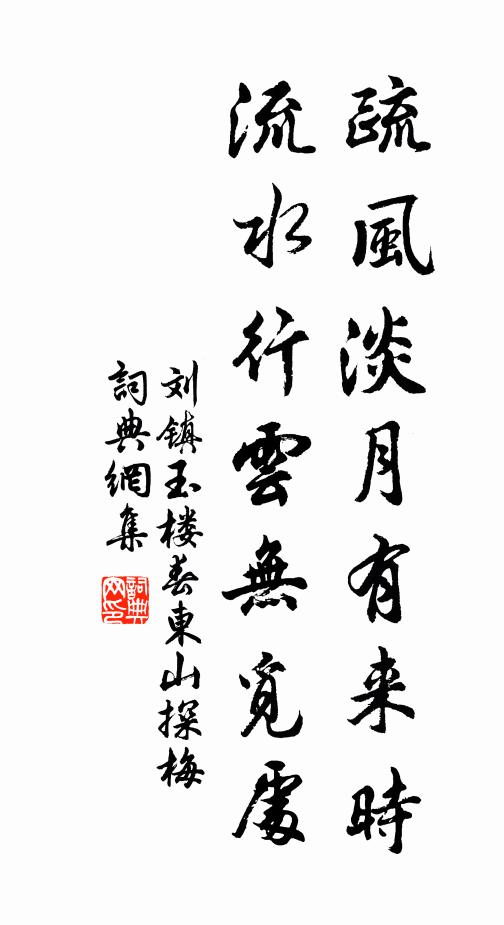 疏風淡月有来時
流水行雲無覓處
刘镇玉楼春東山探梅
詞典網集